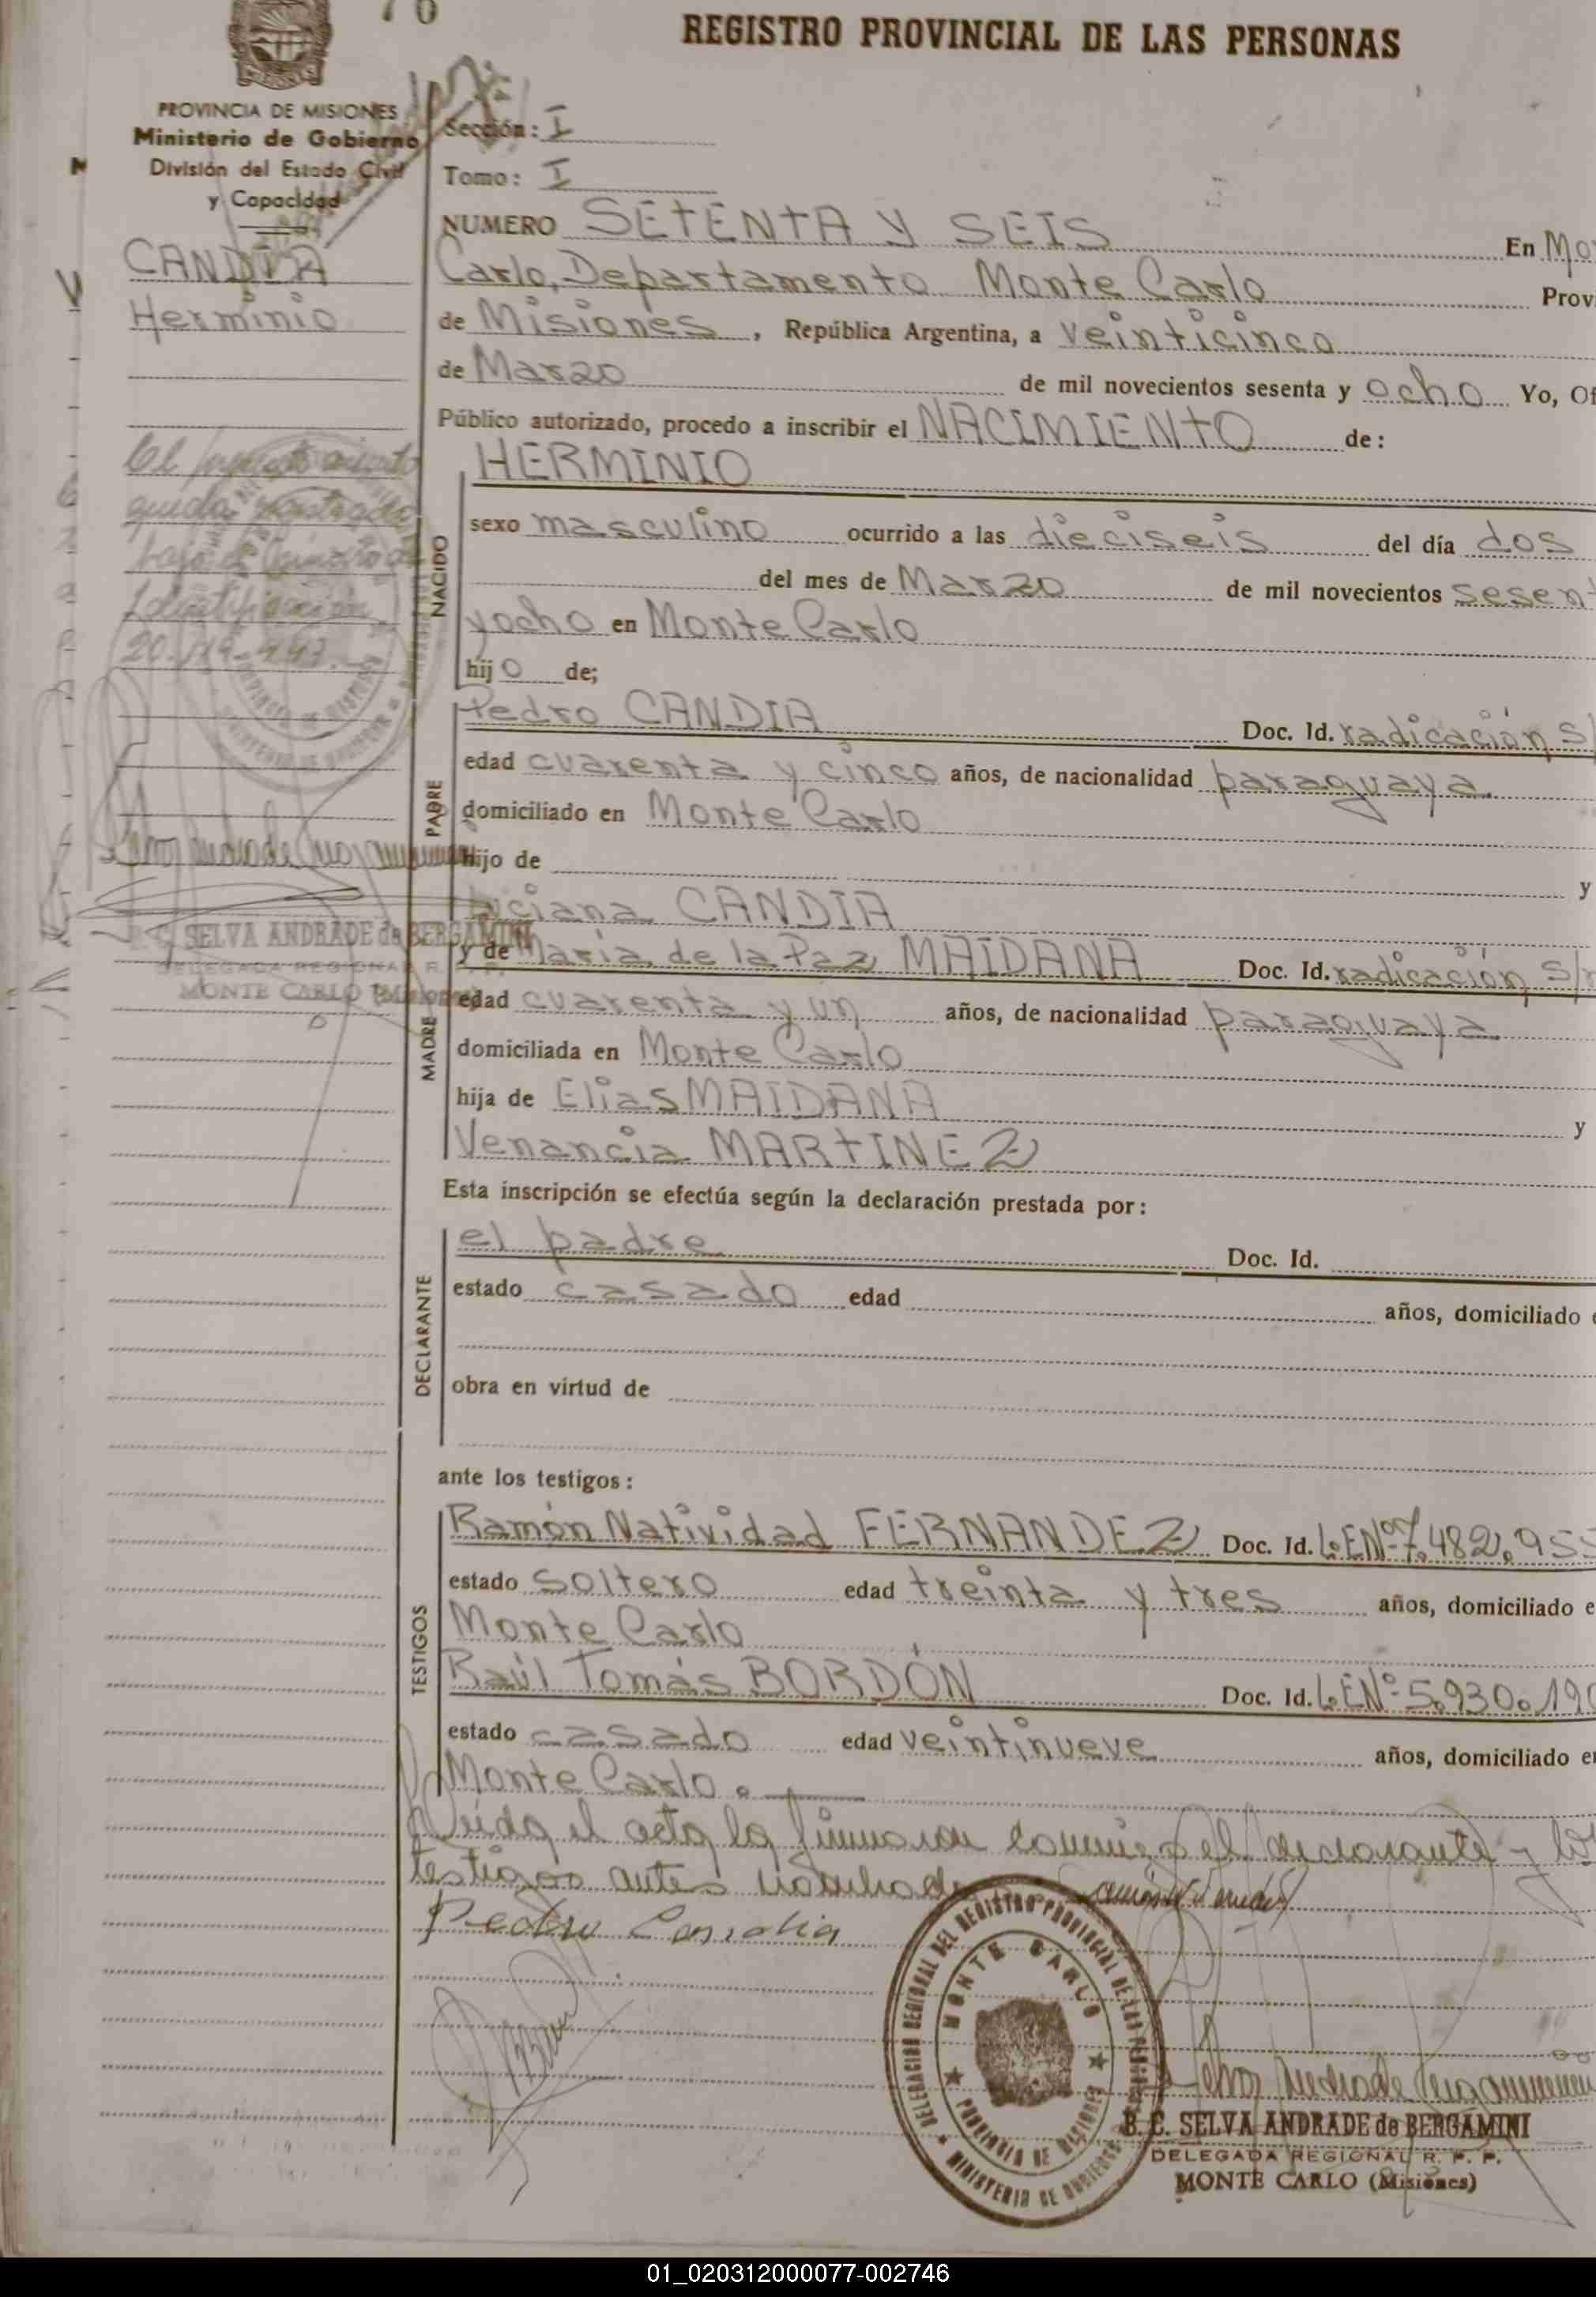 76
REGISTRO PROVINCIAL DE LAS PERSONAS
PROVINCIA DE MISIONES
Ministerio de Gobierno
División del Estado Civil
y Capacidad
CANDIA
Herminio
El presente
queda registrado
bajo el
Identificación
SELVA ANDRADE de BERGAMINI
DELEGADA REGIONAL R. P. P.
MONTE CARLO (Misiones)
Sección: I
Tomo: I
NUMERO SETENTA Y SEIS En Mo
Carlo, Departamento Monte Carlo Prov
de Misiones, República Argentina, a veinticinco
de Marzo de mil novecientos sesenta y ocho Yo, Of
Público autorizado, procedo a inscribir el NACIMIENTO de:
NACIDO
HERMINIO
sexo masculino ocurrido a las dieciseis del día dos
del mes de Marzo de mil novecientos sesen
yocho en Monte Carlo
hijo de;
PADRE
Pedro CANDIA Doc. Id. radicación s/
edad cuarenta y cinco años, de nacionalidad paraguaya
domiciliado en Monte Carlo
hijo de y
CANDIA
MADRE
y de María de la Paz MAIDANA Doc. Id. radicación s/
edad cuarenta y un años, de nacionalidad paraguaya
domiciliada en Monte Carlo
hija de Elias MAIDANA y
Venancia MARTINEZ
Esta inscripción se efectúa según la declaración prestada por:
DECLARANTE
el padre Doc. Id.
estado casado edad años, domiciliado e
obra en virtud de
ante los testigos:
TESTIGOS
Ramón Natividad FERNANDEZ Doc. Id. L.E.Nº 7.482.955
estado soltero edad treinta y tres años, domiciliado e
Monte Carlo
Raúl Tomás BORDÓN Doc. Id. L.E.Nº 5.930.190
estado casado edad veintinueve años, domiciliado en
Monte Carlo.
Leída el acta la firmaron conmigo el declarante y los
testigos antes nombrados
Pedro Candia
DELEGACION REGIONAL DEL REGISTRO PROVINCIAL DE LAS PERSONAS
MONTE CARLO
PROVINCIA DE MISIONES
MINISTERIO DE GOBIERNO
B. E. SELVA ANDRADE de BERGAMINI
DELEGADA REGIONAL R. P. P.
MONTE CARLO (Misiones)
01_020312000077-002746